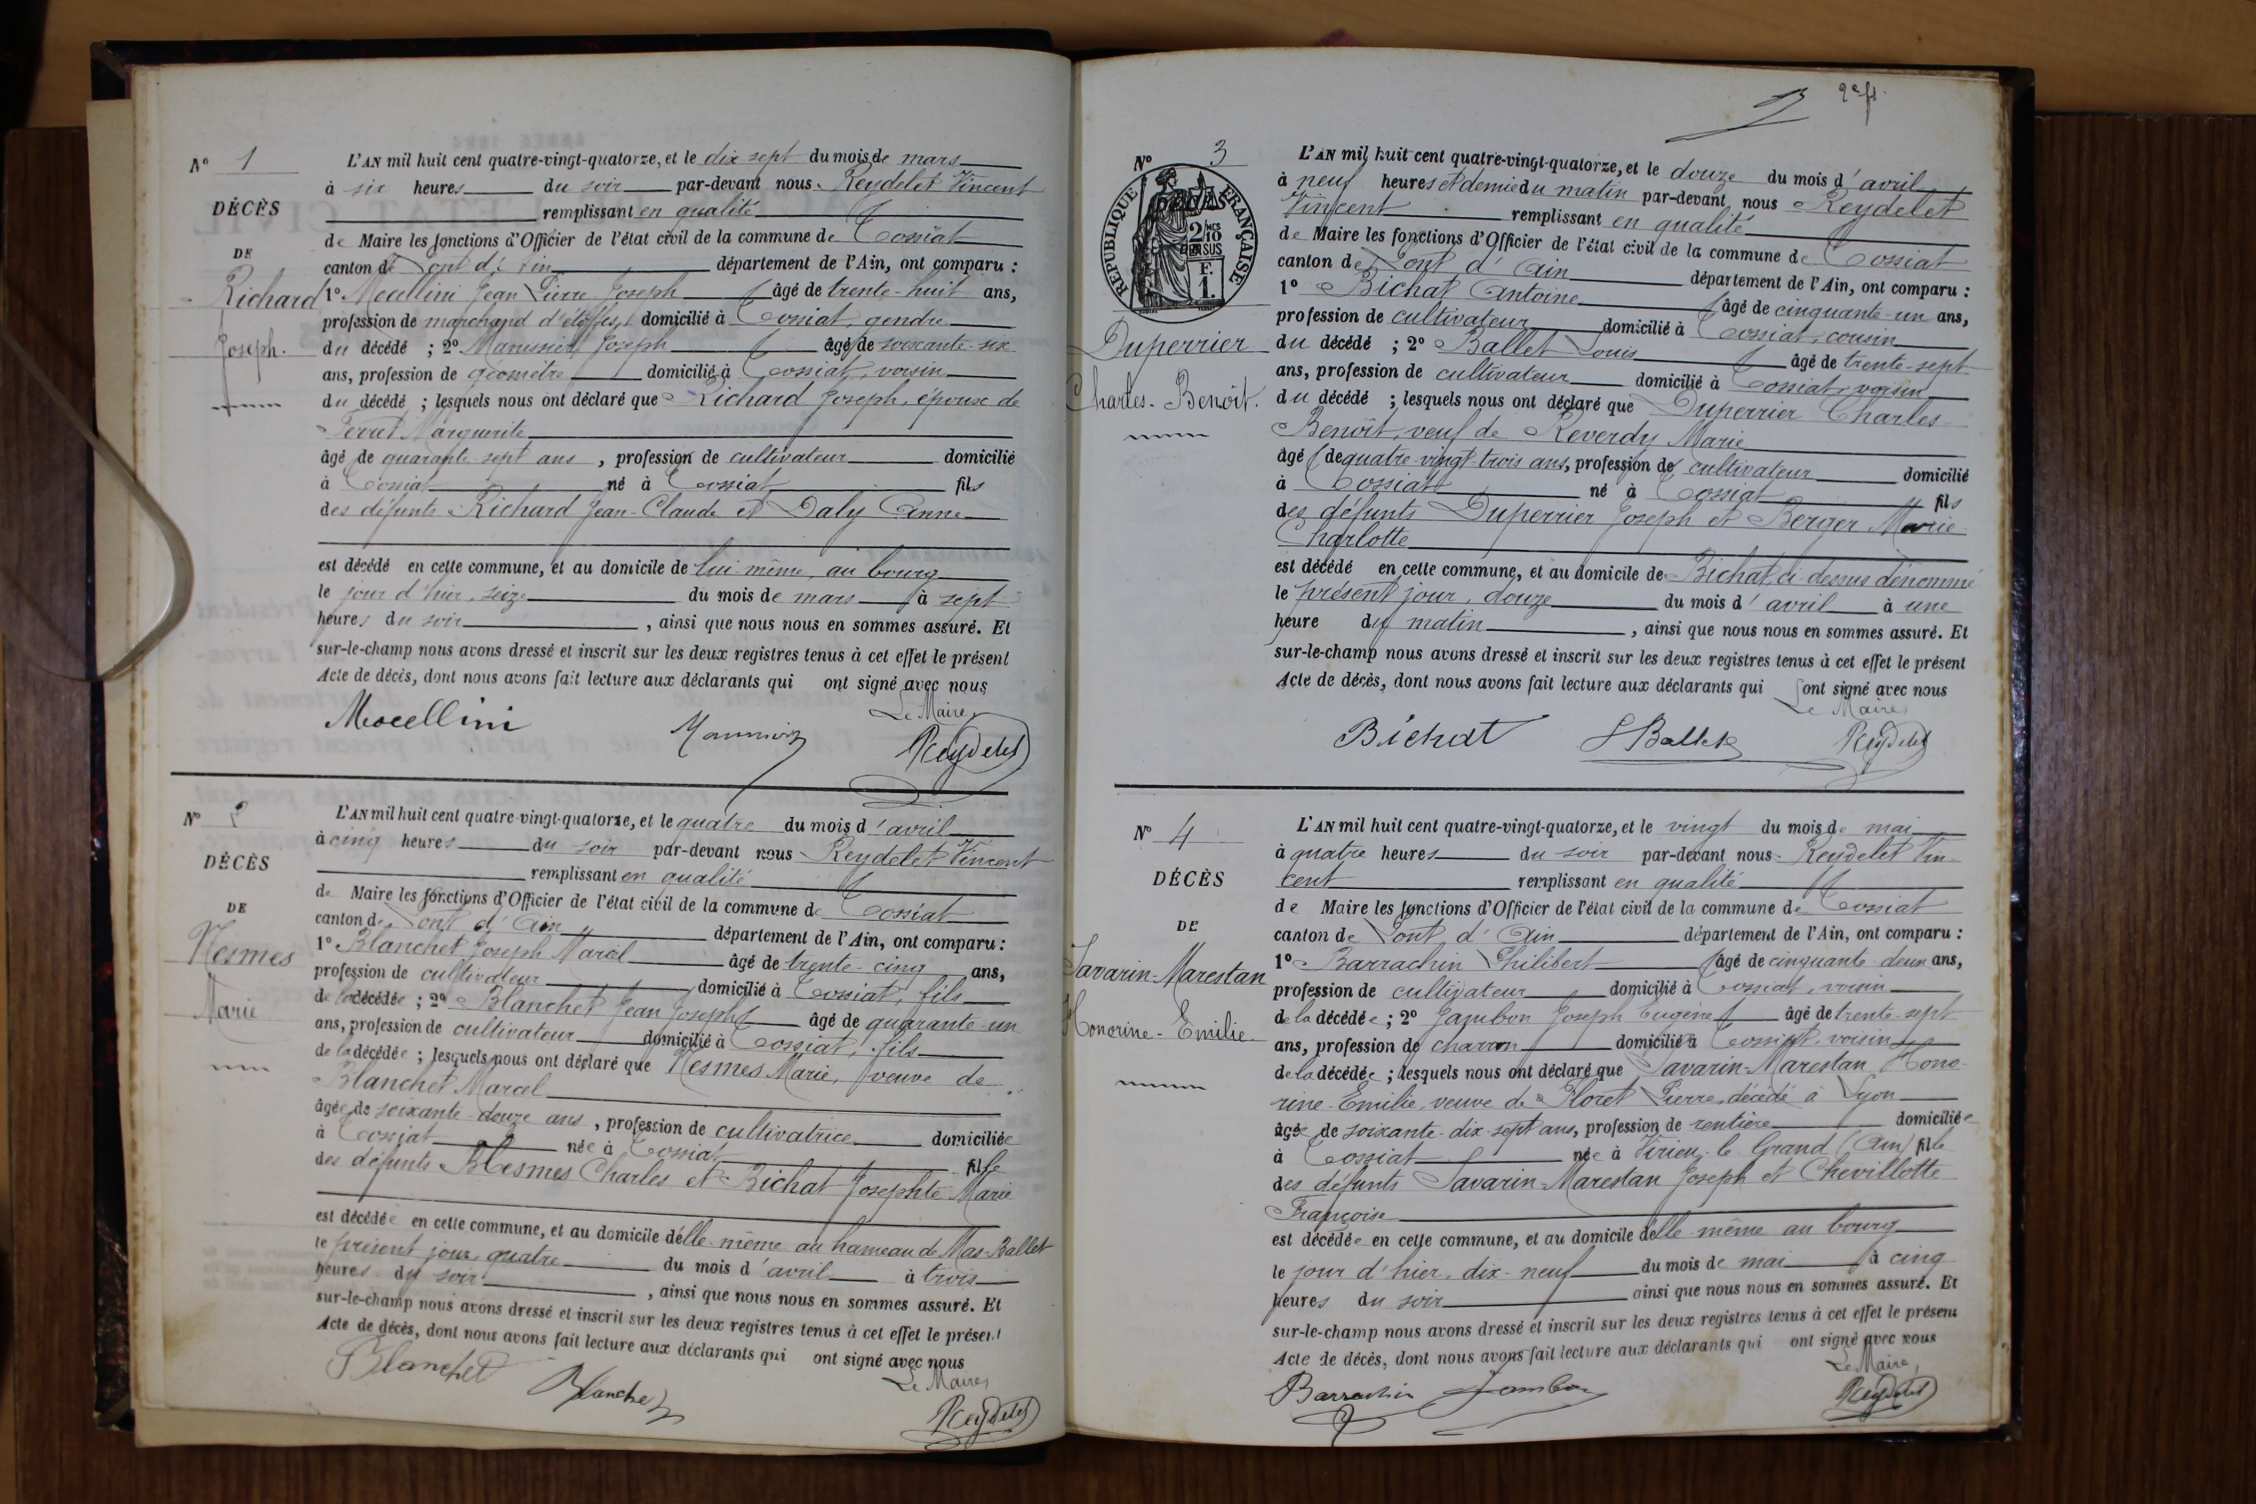 N° 1
DÉCÈS
DE
Richard
Joseph.
L'AN mil huit cent quatre-vingt-quatorze, et le dix sept du mois de mars
à six heures du soir par-devant nous Reydelet Vincent
remplissant en qualité
de Maire les fonctions d'Officier de l'état civil de la commune de Tossiat
canton de Pont d'Ain département de l'Ain, ont comparu :
1° Mocellini Jean Pierre Joseph âgé de trente-huit ans,
profession de marchand d'étoffes, domicilié à Tossiat, gendre
du décédé ; 2° Joseph âgé de soixante-six
ans, profession de géomètre domicilié à Tossiat, voisin
du décédé ; lesquels nous ont déclaré que Richard Joseph, époux de
Perret Marguerite
âgé de quarante sept ans , profession de cultivateur domicilié
à Tossiat né à Tossiat fils
des défunts Richard Jean-Claude et Daly Anne
est décédé en cette commune, et au domicile de lui-même, au bourg
le jour d'hier, seize du mois de mars à sept
heures du soir , ainsi que nous nous en sommes assuré. Et
sur-le-champ nous avons dressé et inscrit sur les deux registres tenus à cet effet le présent
Acte de décès, dont nous avons fait lecture aux déclarants qui ont signé avec nous
Le Maire,
Mocellini Reydelet
N° 2
DÉCÈS
DE
Nesmes
Marie
L'AN mil huit cent quatre-vingt-quatorze, et le quatre du mois d'avril
à cinq heures du soir par-devant nous Reydelet Vincent
remplissant en qualité
de Maire les fonctions d'Officier de l'état civil de la commune de Tossiat
canton de Pont d'Ain département de l'Ain, ont comparu :
1° Blanchet Joseph Marcel âgé de trente-cinq ans,
profession de cultivateur domicilié à Tossiat, fils
de la décédée ; 2° Blanchet Jean Joseph âgé de quarante-un
ans, profession de cultivateur domicilié à Tossiat, fils
de la décédée ; lesquels nous ont déclaré que Nesmes Marie, veuve de
Blanchet Marcel
âgée de soixante-douze ans , profession de cultivatrice domiciliée
à Tossiat née à Tossiat fille
des défunts Nesmes Charles et Bichat Josephte Marie
est décédée en cette commune, et au domicile d'elle-même au hameau de Mas-Ballet
le présent jour, quatre du mois d'avril à trois
heures du soir , ainsi que nous nous en sommes assuré. Et
sur-le-champ nous avons dressé et inscrit sur les deux registres tenus à cet effet le présent
Acte de décès, dont nous avons fait lecture aux déclarants qui ont signé avec nous
Le Maire,
Blanchet Blanchet Reydelet
2e ft.
N° 3
RÉPUBLIQUE FRANÇAISE
2/10 EN SUS
F. 1.
Duperrier
Charles-Benoît.
L'AN mil huit cent quatre-vingt-quatorze, et le douze du mois d'avril
à neuf heures et demie du matin par-devant nous Reydelet
Vincent remplissant en qualité
de Maire les fonctions d'Officier de l'état civil de la commune de Tossiat
canton de Pont d'Ain département de l'Ain, ont comparu :
1° Bichat Antoine âgé de cinquante-un ans,
profession de cultivateur domicilié à Tossiat, cousin
du décédé ; 2° Ballet Louis âgé de trente-sept
ans, profession de cultivateur domicilié à Tossiat, voisin
du décédé ; lesquels nous ont déclaré que Duperrier Charles
Benoît, veuf de Reverdy Marie
âgé de quatre-vingt-trois ans, profession de cultivateur domicilié
à Tossiat né à Tossiat fils
des défunts Duperrier Joseph et Berger Marie
Charlotte
est décédé en cette commune, et au domicile de Bichat, ci-dessus dénommé
le présent jour, douze du mois d'avril à une
heure du matin , ainsi que nous nous en sommes assuré. Et
sur-le-champ nous avons dressé et inscrit sur les deux registres tenus à cet effet le présent
Acte de décès, dont nous avons fait lecture aux déclarants qui ont signé avec nous
Le Maire
Bichat L Ballet Reydelet
N° 4
DÉCÈS
DE
Savarin-Marestan
Honorine-Emilie
L'AN mil huit cent quatre-vingt-quatorze, et le vingt du mois de mai
à quatre heures du soir par-devant nous Reydelet Vin-
cent remplissant en qualité
de Maire les fonctions d'Officier de l'état civil de la commune de Tossiat
canton de Pont d'Ain département de l'Ain, ont comparu :
1° Barrachin Philibert âgé de cinquante deux ans,
profession de cultivateur domicilié à Tossiat, voisin
de la décédée ; 2° Jambon Joseph Eugène âgé de trente-sept
ans, profession de charron domicilié à Tossiat, voisin
de la décédée ; lesquels nous ont déclaré que Savarin-Marestan Hono-
rine-Emilie, veuve de Floret Pierre, décédé à Lyon
âgée de soixante-dix-sept ans, profession de rentière domiciliée
à Tossiat née à Virieu-le-Grand (Ain) fille
des défunts Savarin-Marestan Joseph et Chevillotte
Françoise
est décédée en cette commune, et au domicile d'elle-même au bourg
le jour d'hier, dix-neuf du mois de mai à cinq
heures du soir ainsi que nous nous en sommes assuré. Et
sur-le-champ nous avons dressé et inscrit sur les deux registres tenus à cet effet le présent
Acte de décès, dont nous avons fait lecture aux déclarants qui ont signé avec nous
Le Maire,
Barrachin Jambon Reydelet